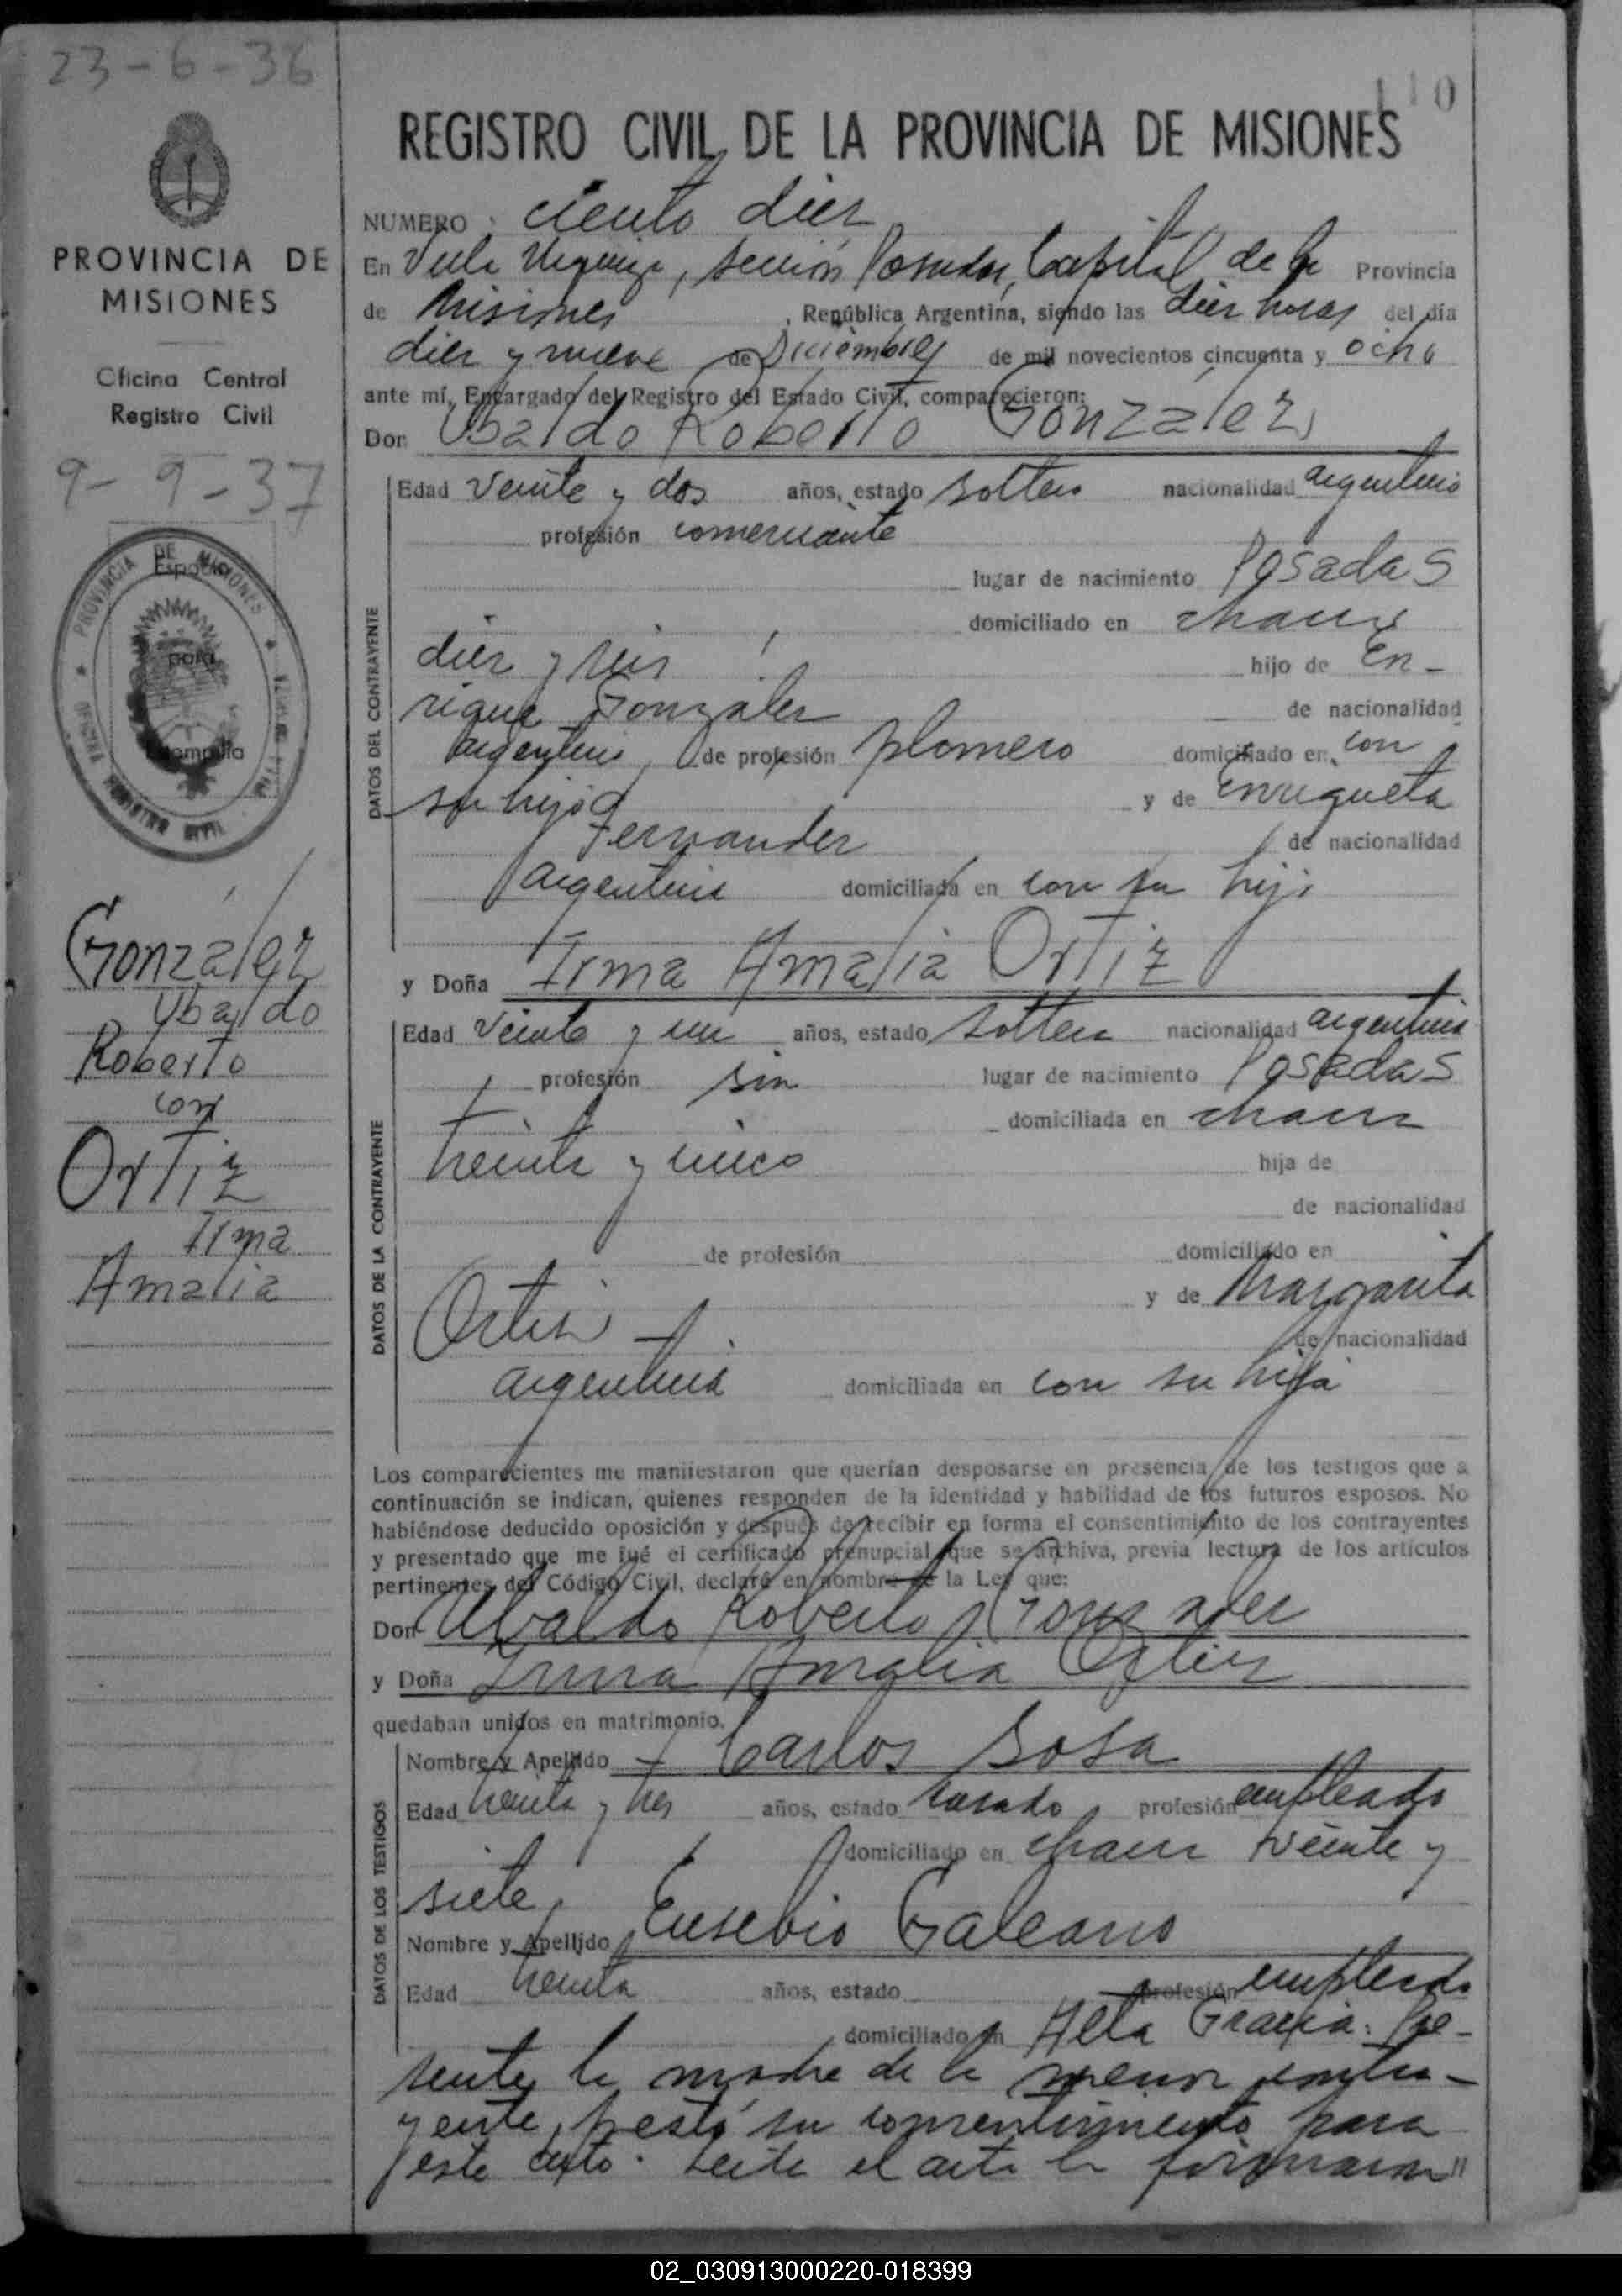 23-6-36
110
REGISTRO CIVIL DE LA PROVINCIA DE MISIONES
PROVINCIA DE
MISIONES
Oficina Central
Registro Civil
9-9-37
PROVINCIA DE MISIONES
Espacio
para
Estampilla
Gonzalez
Ubaldo
Roberto
con
Ortiz
Irma
Amalia
NUMERO ciento diez
En Villa Urquiza, sección Posadas, Capital de la Provincia
de Misiones, República Argentina, siendo las diez horas del día
diez y nueve de Diciembre de mil novecientos cincuenta y ocho
ante mí, Encargado del Registro del Estado Civil, comparecieron:
Don Ubaldo Roberto González
DATOS DEL CONTRAYENTE
Edad veinte y dos años, estado soltero nacionalidad argentino
profesión comerciante
lugar de nacimiento Posadas
domiciliado en chacra
diez y seis hijo de En-
rique Gonzalez de nacionalidad
argentino, de profesión plomero domiciliado en con
su hijo y de Enriqueta
Fernandez de nacionalidad
argentina domiciliada en con su hijo
y Doña Irma Amalia Ortiz
DATOS DE LA CONTRAYENTE
Edad veinte y un años, estado soltera nacionalidad argentina
profesión sin lugar de nacimiento Posadas
domiciliada en chacra
treinta y cinco hija de
de nacionalidad
de profesión domiciliado en
y de Margarita
Ortiz de nacionalidad
argentina domiciliada en con su hija
Los comparecientes me manifestaron que querían desposarse en presencia de los testigos que a
continuación se indican, quienes responden de la identidad y habilidad de los futuros esposos. No
habiéndose deducido oposición y después de recibir en forma el consentimiento de los contrayentes
y presentado que me fué el certificado prenupcial que se archiva, previa lectura de los artículos
pertinentes del Código Civil, declaré en nombre de la Ley que:
Don Ubaldo Roberto Gonzalez
y Doña Irma Amalia Ortiz
quedaban unidos en matrimonio.
DATOS DE LOS TESTIGOS
Nombre y Apellido Carlos Sosa
Edad treinta y tres años, estado casado profesión empleado
domiciliado en chacra veinte y
siete,
Nombre y Apellido Eusebio Galeano
Edad treinta años, estado profesión empleado
domiciliado en Alta Gracia. Pre-
sente la madre de la menor contra-
yente, prestó su consentimiento para
este acto. Leida el acta la firmaron"
02_030913000220-018399